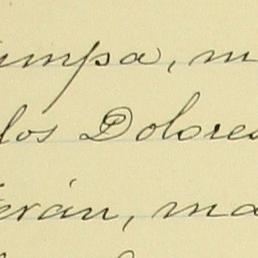 umpa, m
los Dolores
erán, ma